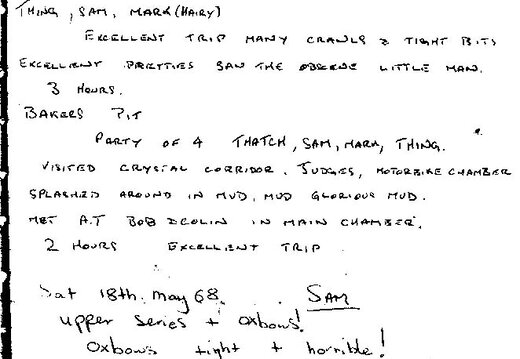 THING, SAM, MARK (HAIRY)
EXCELLENT TRIP MANY CRAWLS & TIGHT BITS
EXCELLENT PRETTIES SAW THE OBSCENE LITTLE MAN.
3 HOURS.
BAKERS PIT
PARTY OF 4 THATCH, SAM, MARK, THING.
VISITED CRYSTAL CORRIDOR, JUDGES, MOTORBIKE CHAMBER
SPLASHED AROUND IN MUD, MUD GLORIOUS MUD.
MET A.T BOB & COLIN IN MAIN CHAMBER.
2 HOURS EXCELLENT TRIP
Sat 18th. May 68. SAM
upper series + oxbows!
oxbows tight + horrible!